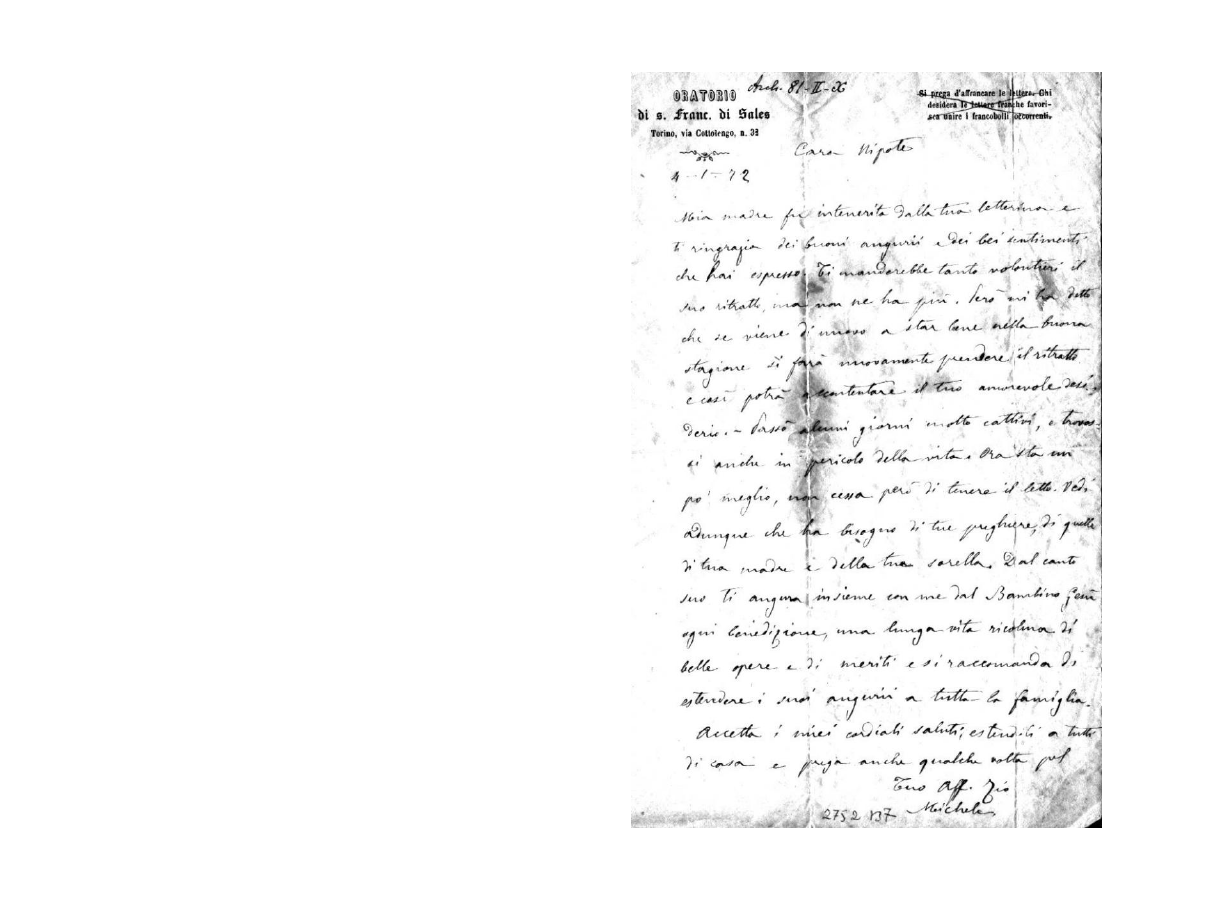 Arch. 81-II-X
ORATORIO
di s. Franc. di Sales
Torino, via Cottolengo, n. 32
Si prega d'affrancare le lettere. Chi
desidera le lettere franche favori-
sca unire i francobolli occorrenti.
Cara Nipote
4-1-72
Mia madre fu intenerita dalla tua letterina e
ti ringrazia dei buoni augurii e dei bei sentimenti
che hai espresso. Ti manderebbe tanto volontieri il
suo ritratto, ma non ne ha più. Però mi ha detto
che se viene di nuovo a star bene nella buona
stagione si farà nuovamente prendere il ritratto
e così potrà accontentare il tuo amorevole desi-
derio. - Passò alcuni giorni molto cattivi, e trovos-
si anche in pericolo della vita. Ora sta un
po' meglio, non cessa però di tenere il letto. Vedi
adunque che ha bisogno di tue preghiere, di quelle
di tua madre e della tua sorella. Dal canto
suo ti augura insieme con me dal Bambino Gesù
ogni benedizione, una lunga vita ricolma di
belle opere e di meriti e si raccomanda di
estendere i suoi augurii a tutta la famiglia.
Accetta i miei cordiali saluti, estendili a tutti
di casa e prega anche qualche volta pel
Tuo Aff. Zio
Michele
2752 B7